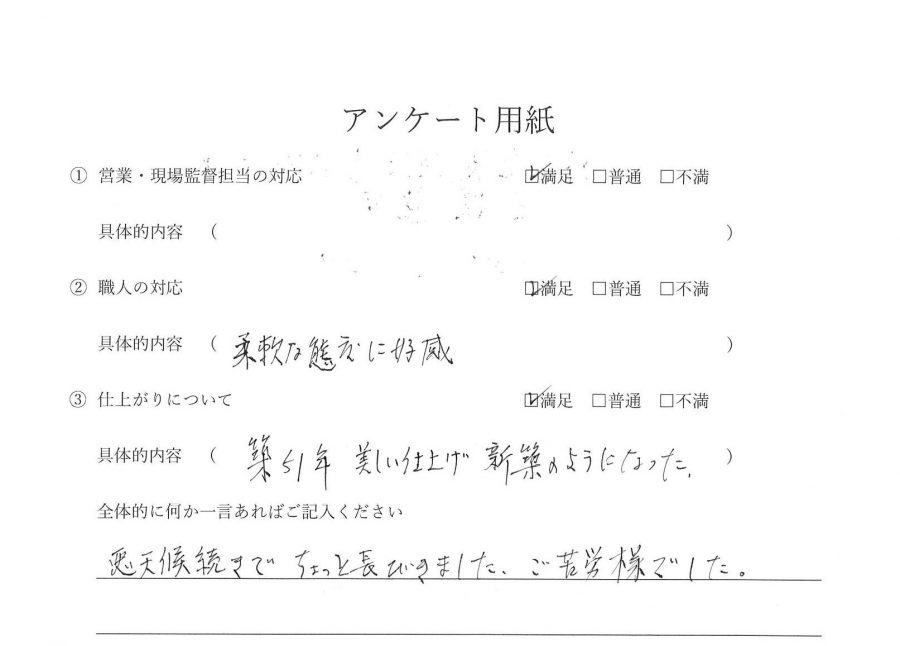 アンケート用紙
① 営業・現場監督担当の対応 ☑満足 □普通 □不満
具体的内容 （ ）
② 職人の対応 ☑満足 □普通 □不満
具体的内容 （ 柔軟な態度に好感 ）
③ 仕上がりについて ☑満足 □普通 □不満
具体的内容 （ 築51年 美しい仕上げ 新築のようになった。 ）
全体的に何か一言あればご記入ください
悪天候続きで ちょっと長びきました、ご苦労様でした。